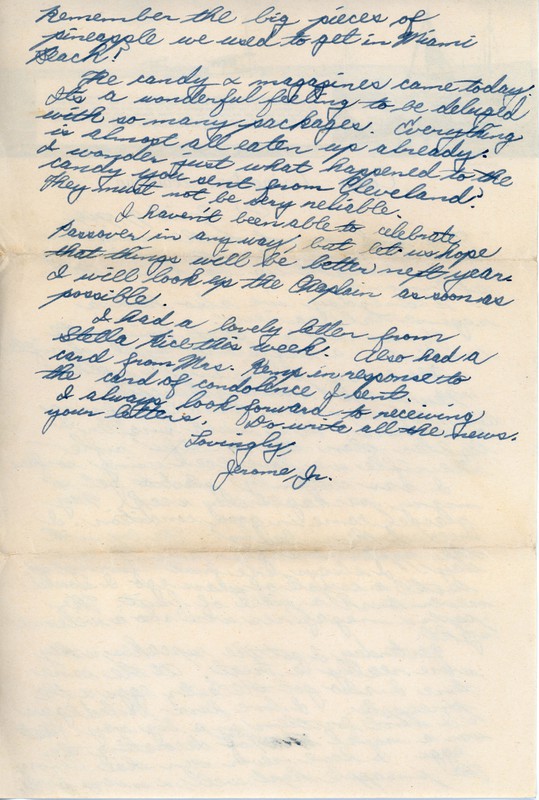 Remember the big pieces of
pineapple we used to get in Miami
Beach!
The candy & magazines came today.
It's a wonderful feeling to be deluged
with so many packages. Everything
is almost all eaten up already.
I wonder just what happened to the
candy you sent from Cleveland?
They must not be very reliable.
I haven't been able to celebrate
Passover in any way, but let us hope
that things will be better next year.
I will look up the Chaplain as soon as
possible.
I had a lovely letter from
Stella Rice this week. Also had a
card from Mrs. Kemp in response to
the card of condolence I sent.
I always look forward to receiving
your letters. Do write all the news.
Lovingly,
Jerome, Jr.